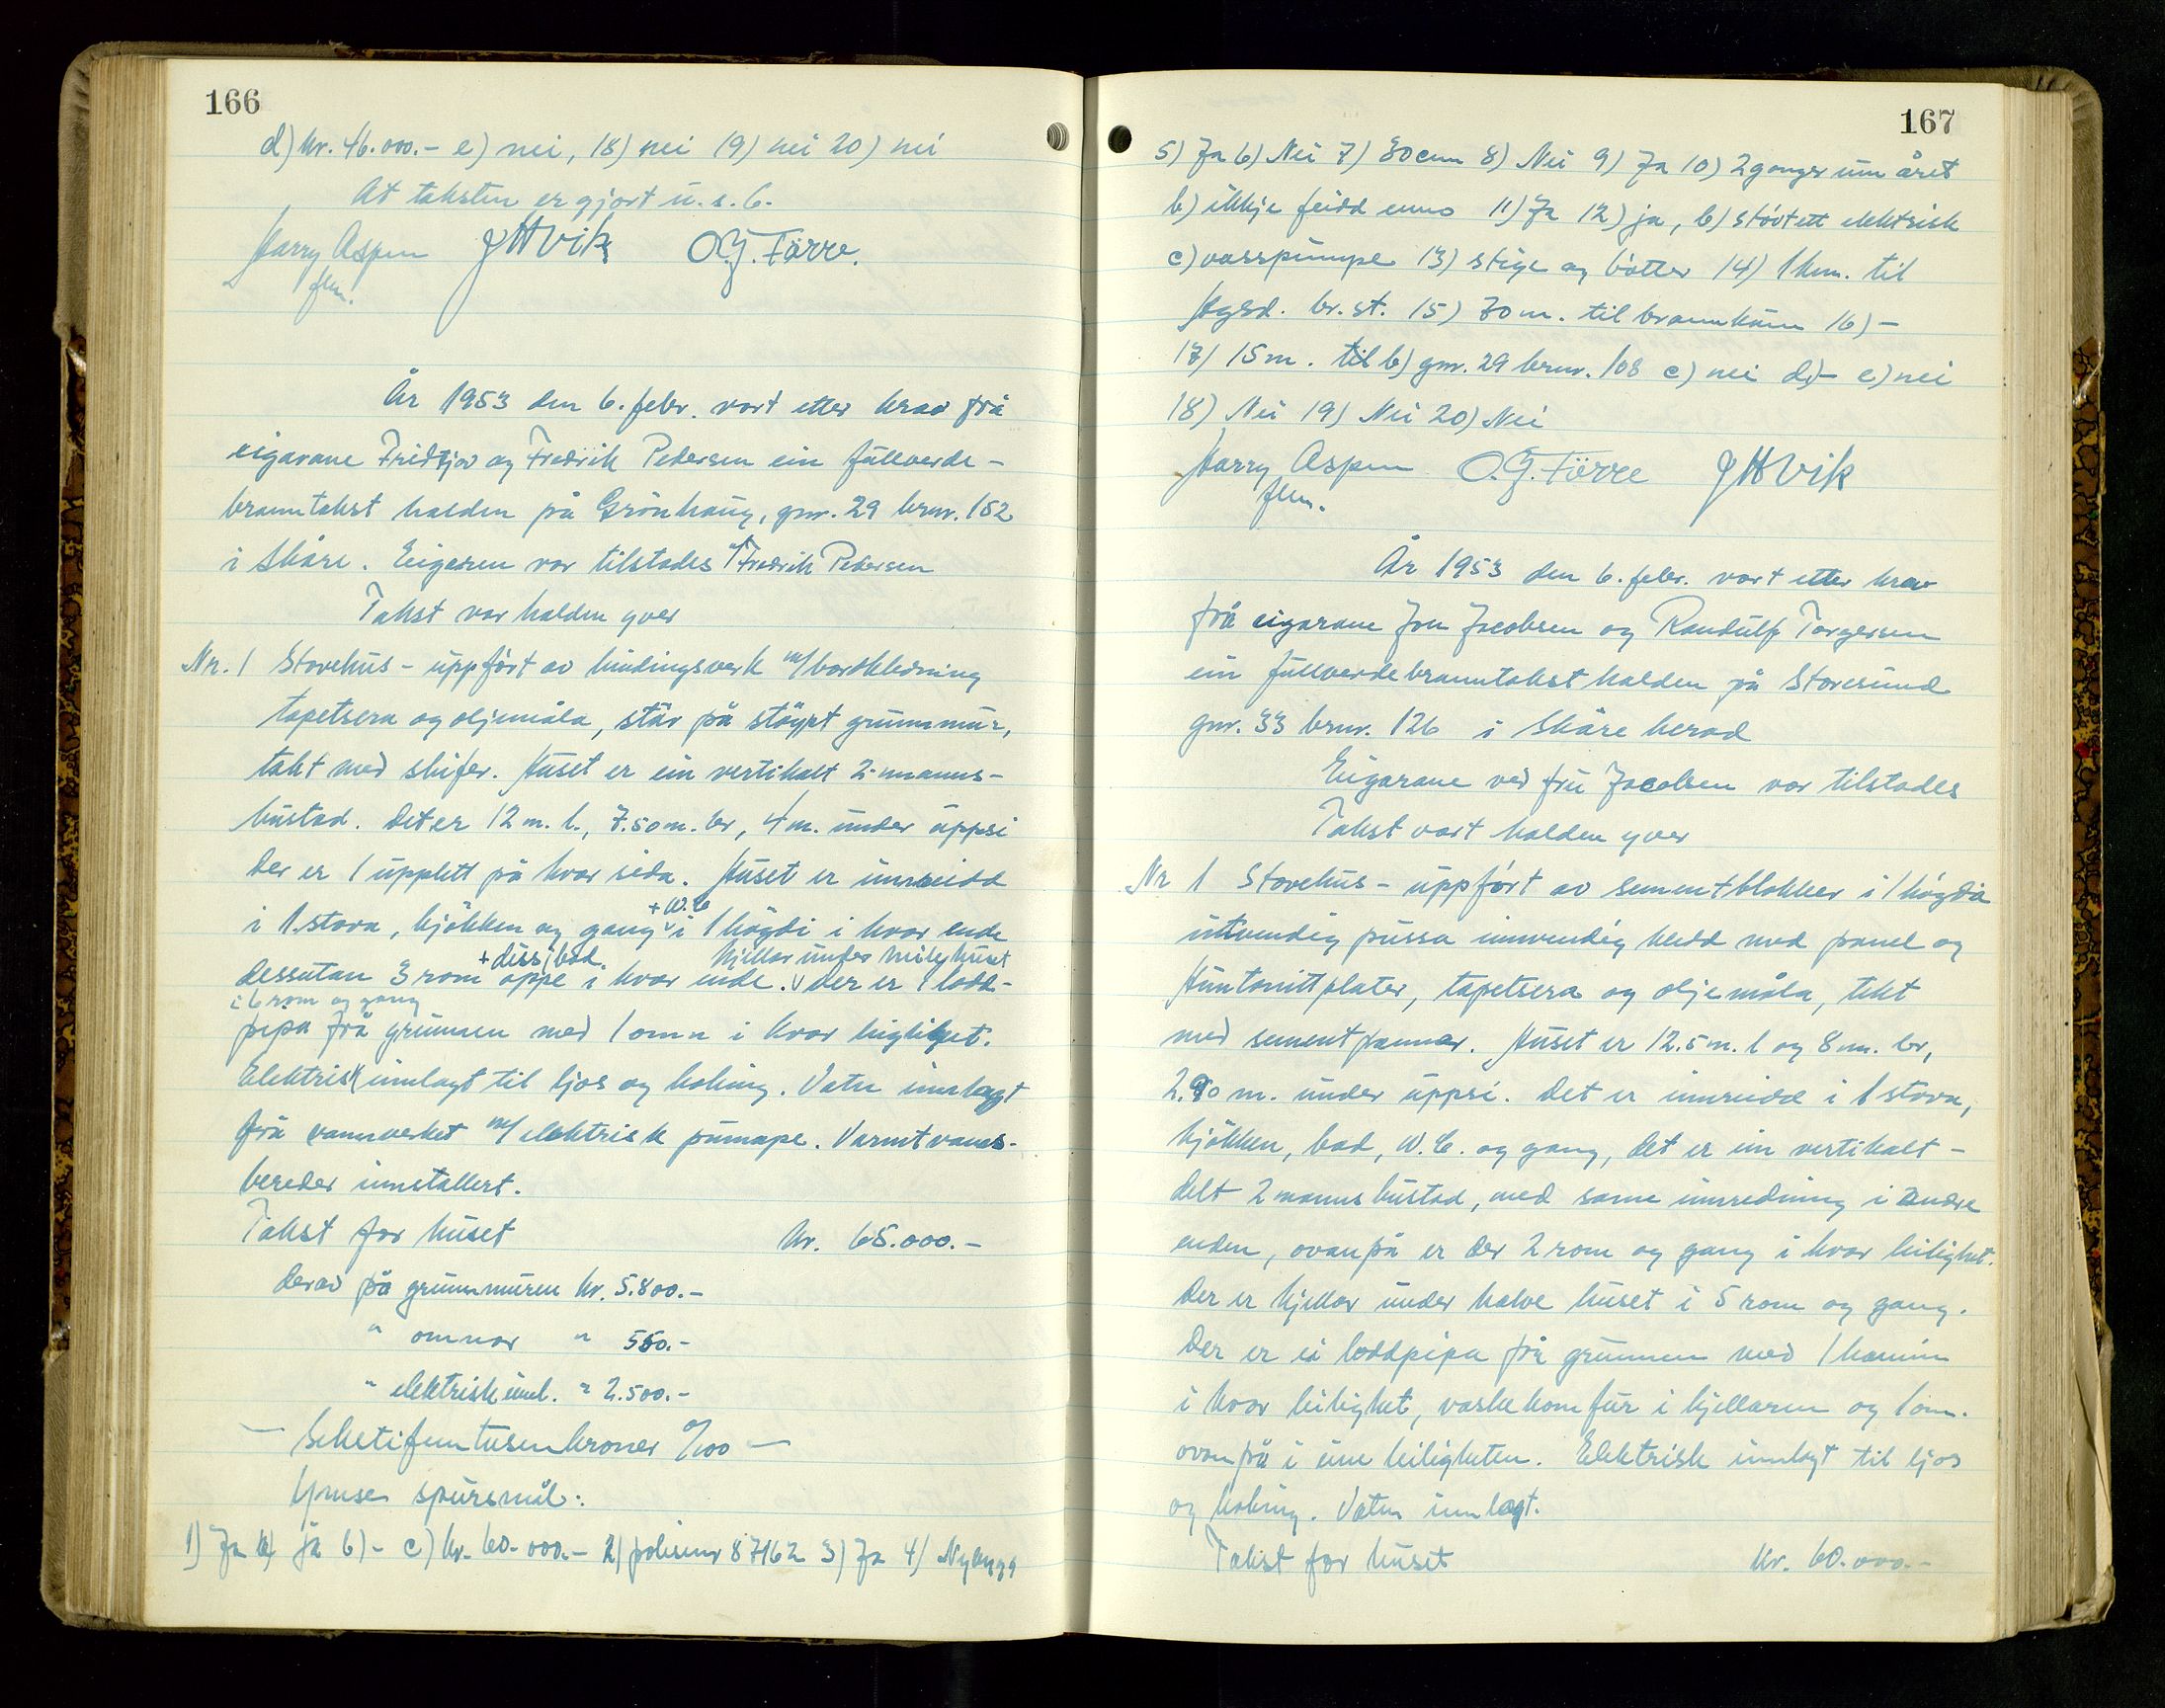 166
d) kr. 46.000.- e) nei, 18) nei 19) nei 20) nei
At taksten er gjort u. s. b.
Harry Aspen JHVik O.G. Førre.
flm.
År 1953 den 6. febr. vart etter krav frå
eigarane Fridtjov og Fredrik Pedersen ein fullverde-
branntakst halden på Grönhaug, gnr. 29 brnr. 152
i Skåre. Eigaren var tilstades Fredrik Pedersen
Takst var halden yver
Nr. 1 Stovehus - uppført av bindingsverk m/bordkledning
tapetsera og oljemåla, står på støypt grunnmur,
takt med skifer. Huset er ein vertikalt 2-manns-
bustad. Det er 12 m. l., 7.50 m. br, 4 m. under uppsi
Der er 1 upplett på kvar sida. Huset er innreidd
i 1. stova, kjökken og gang + W.C i 1 högdi i kvar ende
dessutan 3 rom + diss/bad. oppe i kvar ende. Kjellar under heile huset
i 6 rom og gang Der er 1 lodd-
pipa frå grunnen med 1 omn i kvar leiligheit.
Elektrisk innlagt til ljos og koking. Vatn innlagt
frå vannverket m/ elektrisk pumpe. Varmtvanns-
bereder innstallert.
Takst for huset kr. 65.000.-
Derav på grunnmuren kr. 5.800.-
" omnar " 550.-
" elektrisk innl. " 2.500.-
- Sekstifemtusenkroner 0/100 -
Ymse spursmål:
1) Ja a) ja b) - c) kr. 60.000.- 2) polisenr 87162 3) Ja 4) Nybygg
167
5) Ja 6) Nei 7) 80 cm 8) Nei 9) Ja 10) 2 gonger um året
b) ikkje feidd enno 11) Ja 12) ja, b) støtt ett elektrisk
c) vasspumpe 13) stige og bøtter 14) 1 km. til
Hgsd. br. st. 15) 70 m. til brannkum 16) -
17) 15 m. til b) gnr. 29 brnr. 108 c) nei d) - e) nei
18) Nei 19) Nei 20) Nei
Harry Aspen O.G. Førre JHVik
flm.
År 1953 den 6. febr. vart etter krav
frå eigarane Jon Jacobsen og Randulf Torgersen
ein fullverdebranntakst halden på Storesund
gnr. 33 brnr. 126 i Skåre herad
Eigarane ved fru Jacobsen var tilstades
Takst vart halden yver
Nr 1 Stovehus - uppført av sementblokker i 1 högda
utvendig pussa innvendig kledd med panel og
Huntonittplater, tapetsera og oljemåla, tekt
med sementpannar. Huset er 12.5 m. l og 8 m. br,
2.90 m. under uppsi. Det er innreidd i 1 stova,
kjökken, bad, W.C. og gang, det er ein vertikalt-
delt 2 manns bustad, med same innredning i andre
enden, ovanpå er der 2 rom og gang i kvar leilighet.
Der er kjellar under halve huset i 5 rom og gang.
Der er ei loddpipa frå grunnen med 1 kamin
i kvar leilighet, vaskekomfur i kjellaren og 1 omn.
ovanpå i eine leiligheten. Elektrisk innlagt til ljos
og koking. Vatn innlagt.
Takst for huset kr. 60.000.-